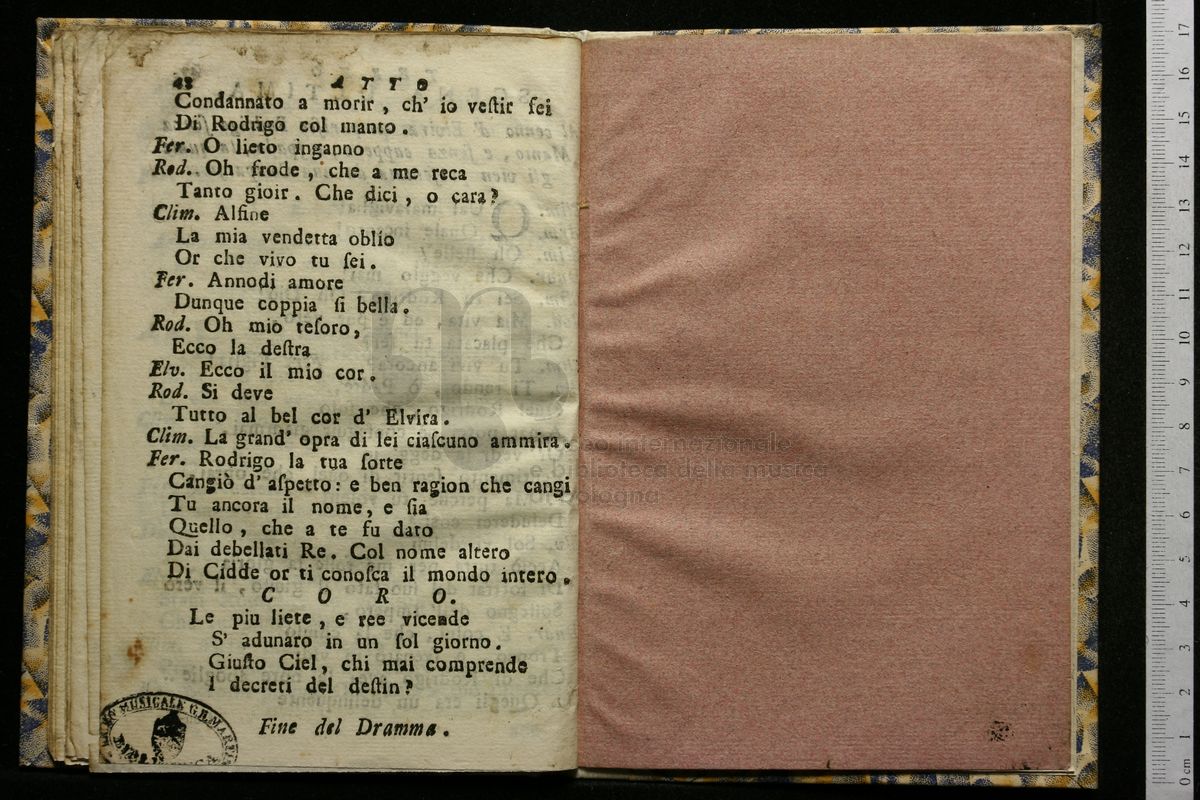 48 ATTO
Condannato a morir, ch' io veſtir fei
Di Rodrigo col manto.
Fer. O lieto inganno
Rod. Oh frode, che a me reca
Tanto gioir. Che dici, o cara?
Clim. Alfine
La mia vendetta oblío
Or che vivo tu ſei.
Fer. Annodi amore
Dunque coppia ſi bella.
Rod. Oh mio teſoro,
Ecco la deſtra
Elv. Ecco il mio cor.
Rod. Si deve
Tutto al bel cor d' Elvira.
Clim. La grand' opra di lei ciaſcuno ammira.
Fer. Rodrigo la tua ſorte
Cangiò d' aſpetto: e ben ragion che cangi
Tu ancora il nome, e ſia
Quello, che a te fu dato
Dai debellati Re. Col nome altero
Di Cidde or ti conoſca il mondo intero.
C O R O.
Le piu liete, e ree vicende
S' adunaro in un ſol giorno.
Giuſto Ciel, chi mai comprende
I decreti del deſtin?
Fine del Dramma.
LICEO MUSICALE G.B. MARTINI
museo internazionale
e biblioteca della musica
di bologna
0 cm 1 2 3 4 5 6 7 8 9 10 11 12 13 14 15 16 17